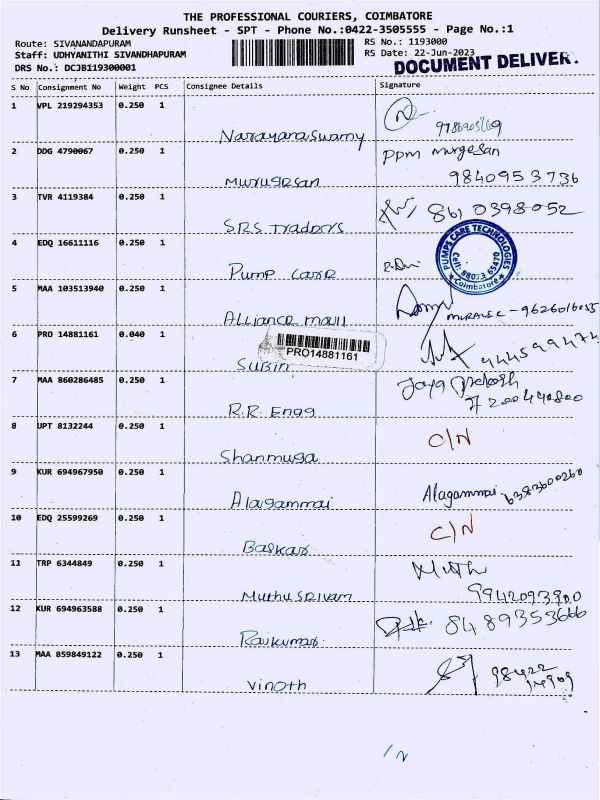 THE PROFESSIONAL COURIERS, COIMBATORE
Delivery Runsheet - SPT - Phone No.:0422-3505555 - Page No.:1
Route: SIVANANDAPURAM RS No.: 1193000
Staff: UDHYANITHI SIVANDHAPURAM RS Date: 22-Jun-2023
DRS No.: DCJB119300001 DOCUMENT DELIVER.
S No Consignment No Weight PCS Consignee Details Signature
1 VPL 219294353 0.250 1
Narayanaswamy
2 DDG 4790067 0.250 1 ppm murgesan
Murugesan 9840953736
3 TVR 4119384 0.250 1 8610398052
S.R.S Traders
4 EDQ 16611116 0.250 1
PUMPS CARE TECHNOLOGIES
Cell: 88073 65470
Coimbatore
Pump care
5 MAA 103513940 0.250 1
Alliance mall 9626016055
6 PRO 14881161 0.040 1
PRO14881161
Subin
7 MAA 860286485 0.250 1 Jaya Prakash
R.R. Engg 7200440800
8 UPT 8132244 0.250 1 C/N
Shanmuga
9 KUR 694967950 0.250 1 Alagammai 6383600260
Alagammai
10 EDQ 25599269 0.250 1 C/N
Baskar
11 TRP 6344849 0.250 1 Muth
Muthu Srivam 9942093900
12 KUR 694963588 0.250 1 8489353666
Rajkumar
13 MAA 859849122 0.250 1 98422
14909
Vinoth